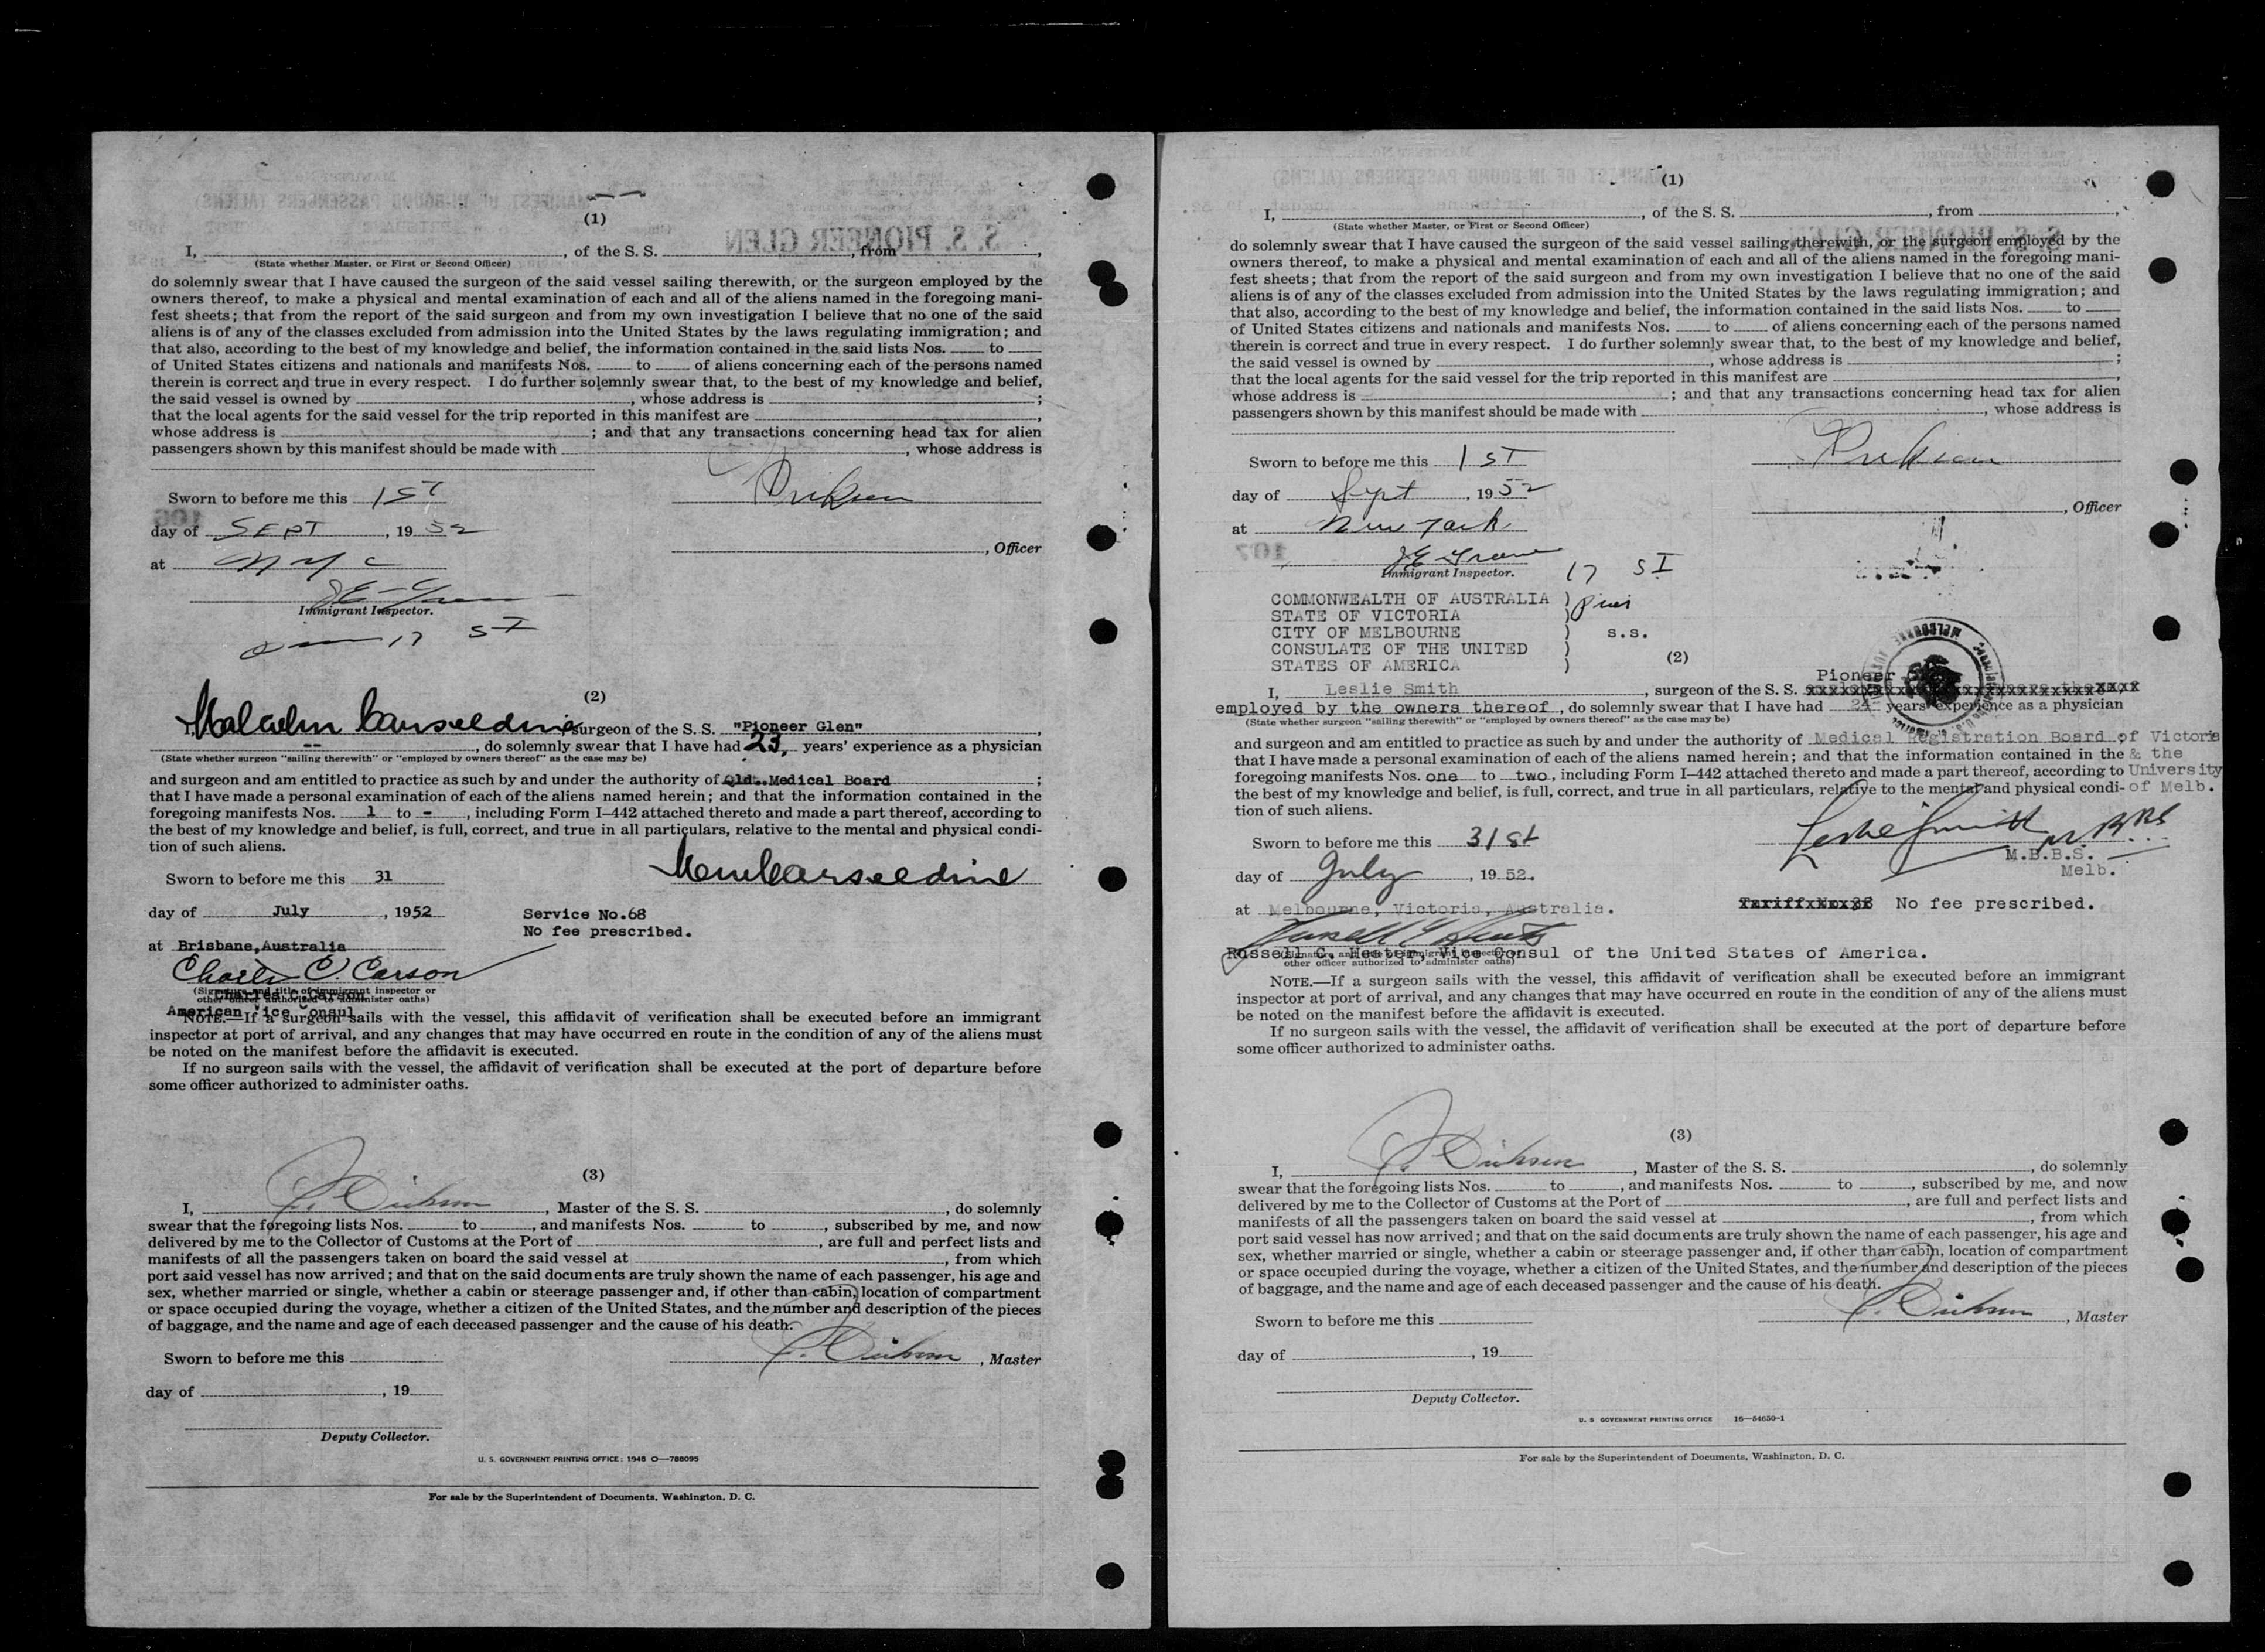 (1)
I, , of the S. S. , from ,
(State whether Master, or First or Second Officer)
do solemnly swear that I have caused the surgeon of the said vessel sailing therewith, or the surgeon employed by the
owners thereof, to make a physical and mental examination of each and all of the aliens named in the foregoing mani-
fest sheets; that from the report of the said surgeon and from my own investigation I believe that no one of the said
aliens is of any of the classes excluded from admission into the United States by the laws regulating immigration; and
that also, according to the best of my knowledge and belief, the information contained in the said lists Nos. to
of United States citizens and nationals and manifests Nos. to of aliens concerning each of the persons named
therein is correct and true in every respect. I do further solemnly swear that, to the best of my knowledge and belief,
the said vessel is owned by , whose address is ;
that the local agents for the said vessel for the trip reported in this manifest are ,
whose address is ; and that any transactions concerning head tax for alien
passengers shown by this manifest should be made with , whose address is
Sworn to before me this 1ST
day of SEPT , 19 52
, Officer
at NYC
Immigrant Inspector.
17 SI
(2)
I, Malcolm Carseldine surgeon of the S. S. "Pioneer Glen" ,
-- , do solemnly swear that I have had 23, years' experience as a physician
(State whether surgeon "sailing therewith" or "employed by owners thereof" as the case may be)
and surgeon and am entitled to practice as such by and under the authority of Qld. Medical Board ;
that I have made a personal examination of each of the aliens named herein; and that the information contained in the
foregoing manifests Nos. 1 to - , including Form I-442 attached thereto and made a part thereof, according to
the best of my knowledge and belief, is full, correct, and true in all particulars, relative to the mental and physical condi-
tion of such aliens.
Sworn to before me this 31
day of July , 1952
Service No.68
No fee prescribed.
at Brisbane,Australia
Charles C. Carson
(Signature and title of immigrant inspector or
other officer authorized to administer oaths)
Charles C. Carson
American Vice Consul
NOTE.—If a surgeon sails with the vessel, this affidavit of verification shall be executed before an immigrant
inspector at port of arrival, and any changes that may have occurred en route in the condition of any of the aliens must
be noted on the manifest before the affidavit is executed.
If no surgeon sails with the vessel, the affidavit of verification shall be executed at the port of departure before
some officer authorized to administer oaths.
(3)
I, , Master of the S. S. , do solemnly
swear that the foregoing lists Nos. to , and manifests Nos. to , subscribed by me, and now
delivered by me to the Collector of Customs at the Port of , are full and perfect lists and
manifests of all the passengers taken on board the said vessel at , from which
port said vessel has now arrived; and that on the said documents are truly shown the name of each passenger, his age and
sex, whether married or single, whether a cabin or steerage passenger and, if other than cabin, location of compartment
or space occupied during the voyage, whether a citizen of the United States, and the number and description of the pieces
of baggage, and the name and age of each deceased passenger and the cause of his death.
Sworn to before me this
, Master
day of , 19
Deputy Collector.
U. S. GOVERNMENT PRINTING OFFICE: 1948 O—788095
For sale by the Superintendent of Documents, Washington, D. C.
(1)
I, , of the S. S. , from ,
(State whether Master, or First or Second Officer)
do solemnly swear that I have caused the surgeon of the said vessel sailing therewith, or the surgeon employed by the
owners thereof, to make a physical and mental examination of each and all of the aliens named in the foregoing mani-
fest sheets; that from the report of the said surgeon and from my own investigation I believe that no one of the said
aliens is of any of the classes excluded from admission into the United States by the laws regulating immigration; and
that also, according to the best of my knowledge and belief, the information contained in the said lists Nos. to
of United States citizens and nationals and manifests Nos. to of aliens concerning each of the persons named
therein is correct and true in every respect. I do further solemnly swear that, to the best of my knowledge and belief,
the said vessel is owned by , whose address is ;
that the local agents for the said vessel for the trip reported in this manifest are ,
whose address is ; and that any transactions concerning head tax for alien
passengers shown by this manifest should be made with , whose address is
Sworn to before me this 1ST
day of Sept , 19 52
, Officer
at New York
Immigrant Inspector.
17 SI
COMMONWEALTH OF AUSTRALIA )
STATE OF VICTORIA )
CITY OF MELBOURNE ) s.s.
CONSULATE OF THE UNITED )
STATES OF AMERICA )
(2)
Pioneer
I, Leslie Smith , surgeon of the S. S.
employed by the owners thereof , do solemnly swear that I have had 24 years' experience as a physician
(State whether surgeon "sailing therewith" or "employed by owners thereof" as the case may be)
and surgeon and am entitled to practice as such by and under the authority of Medical Registration Board of Victoria
that I have made a personal examination of each of the aliens named herein; and that the information contained in the & the
foregoing manifests Nos. one to two, including Form I-442 attached thereto and made a part thereof, according to University
the best of my knowledge and belief, is full, correct, and true in all particulars, relative to the mental and physical condi- of Melb.
tion of such aliens.
Sworn to before me this 31st
Leslie Smith M.B.B.S.
M.B.B.S.
Melb.
day of July , 1952.
at Melbourne, Victoria, Australia.
Tariff No. 38 No fee prescribed.
Russell C. Heater, Vice Consul of the United States of America.
(Signature and title of immigrant inspector or
other officer authorized to administer oaths)
NOTE.—If a surgeon sails with the vessel, this affidavit of verification shall be executed before an immigrant
inspector at port of arrival, and any changes that may have occurred en route in the condition of any of the aliens must
be noted on the manifest before the affidavit is executed.
If no surgeon sails with the vessel, the affidavit of verification shall be executed at the port of departure before
some officer authorized to administer oaths.
(3)
I, , Master of the S. S. , do solemnly
swear that the foregoing lists Nos. to , and manifests Nos. to , subscribed by me, and now
delivered by me to the Collector of Customs at the Port of , are full and perfect lists and
manifests of all the passengers taken on board the said vessel at , from which
port said vessel has now arrived; and that on the said documents are truly shown the name of each passenger, his age and
sex, whether married or single, whether a cabin or steerage passenger and, if other than cabin, location of compartment
or space occupied during the voyage, whether a citizen of the United States, and the number and description of the pieces
of baggage, and the name and age of each deceased passenger and the cause of his death.
Sworn to before me this
, Master
day of , 19
Deputy Collector.
U. S. GOVERNMENT PRINTING OFFICE 16—54650-1
For sale by the Superintendent of Documents, Washington, D. C.